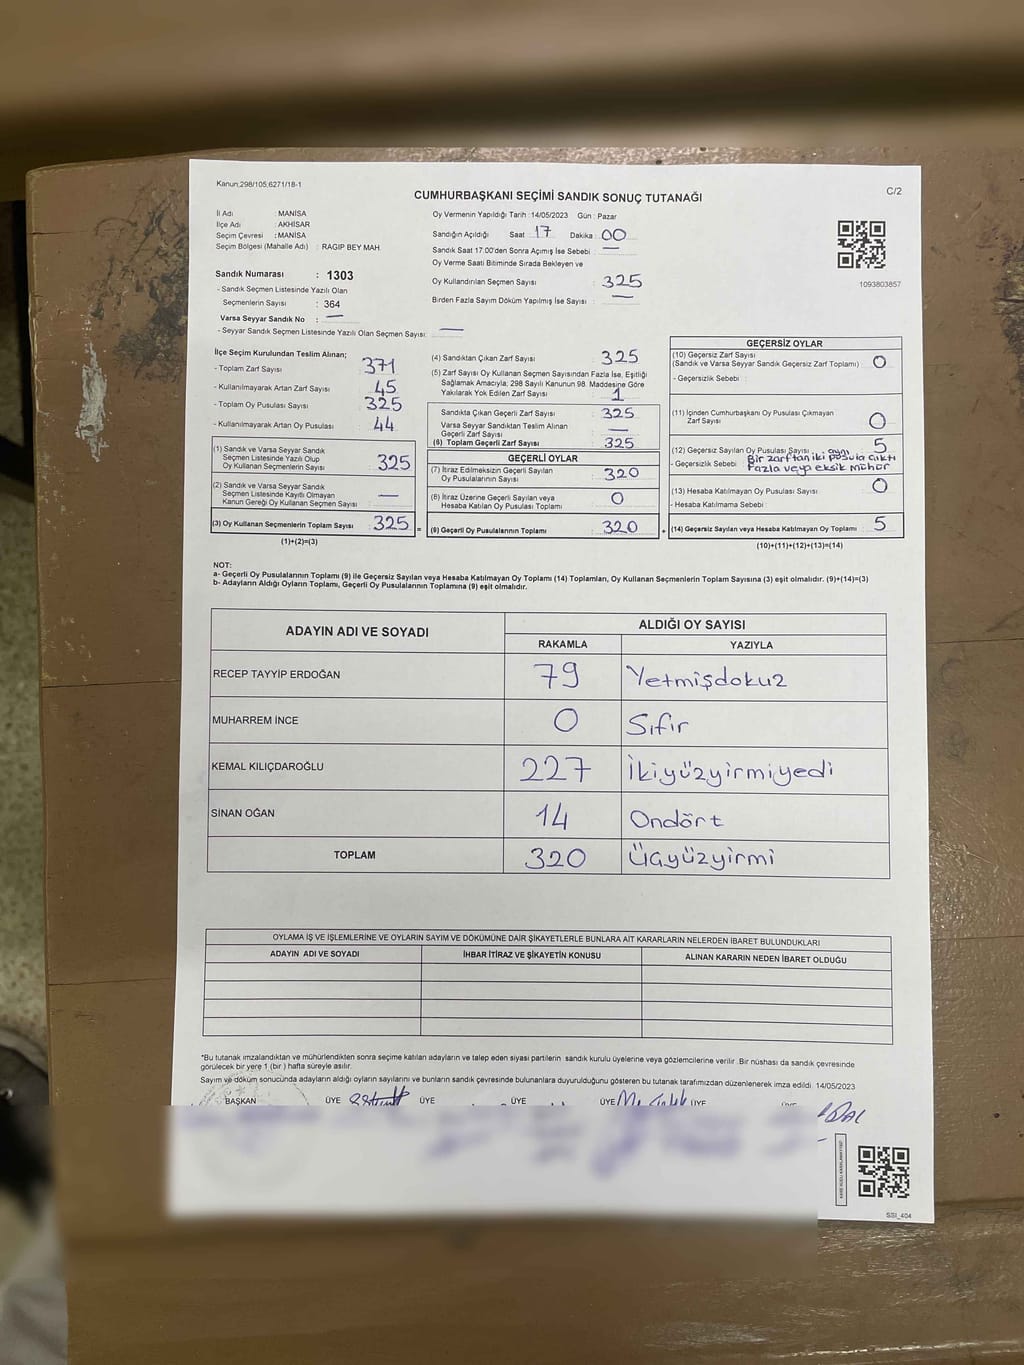 Kanun;298/105,6271/18-1
C/2
CUMHURBAŞKANI SEÇİMİ SANDIK SONUÇ TUTANAĞI
İl Adı : MANİSA
İlçe Adı : AKHİSAR
Seçim Çevresi : MANİSA
Seçim Bölgesi (Mahalle Adı) : RAGIP BEY MAH
Sandık Numarası : 1303
- Sandık Seçmen Listesinde Yazılı Olan
Seçmenlerin Sayısı : 364
Varsa Seyyar Sandık No : —
- Seyyar Sandık Seçmen Listesinde Yazılı Olan Seçmen Sayısı: —
Oy Vermenin Yapıldığı Tarih : 14/05/2023 Gün : Pazar
Sandığın Açıldığı Saat 17 Dakika : 00
Sandık Saat 17.00'den Sonra Açımış İse Sebebi : —
Oy Verme Saati Bitiminde Sırada Bekleyen ve
Oy Kullandırılan Seçmen Sayısı : 325
Birden Fazla Sayım Döküm Yapılmış İse Sayısı : —
1093803857
İlçe Seçim Kurulundan Teslim Alınan;
- Toplam Zarf Sayısı 371
- Kullanılmayarak Artan Zarf Sayısı 45
- Toplam Oy Pusulası Sayısı 325
- Kullanılmayarak Artan Oy Pusulası 44
(1) Sandık ve Varsa Seyyar Sandık
Seçmen Listesinde Yazılı Olup
Oy Kullanan Seçmenlerin Sayısı 325
(2) Sandık ve Varsa Seyyar Sandık
Seçmen Listesinde Kayıtlı Olmayan
Kanun Gereği Oy Kullanan Seçmen Sayısı —
(3) Oy Kullanan Seçmenlerin Toplam Sayısı 325 =
(1)+(2)=(3)
(4) Sandıktan Çıkan Zarf Sayısı 325
(5) Zarf Sayısı Oy Kullanan Seçmen Sayısından Fazla İse, Eşitliği
Sağlamak Amacıyla; 298 Sayılı Kanunun 98. Maddesine Göre
Yakılarak Yok Edilen Zarf Sayısı 1
Sandıkta Çıkan Geçerli Zarf Sayısı 325
Varsa Seyyar Sandıktan Teslim Alınan
Geçerli Zarf Sayısı —
(6) Toplam Geçerli Zarf Sayısı 325
GEÇERLİ OYLAR
(7) İtiraz Edilmeksizin Geçerli Sayılan
Oy Pusulalarının Sayısı 320
(8) İtiraz Üzerine Geçerli Sayılan veya
Hesaba Katılan Oy Pusulası Toplamı 0
(9) Geçerli Oy Pusulalarının Toplamı 320 +
GEÇERSİZ OYLAR
(10) Geçersiz Zarf Sayısı
(Sandık ve Varsa Seyyar Sandık Geçersiz Zarf Toplamı) 0
- Geçersizlik Sebebi :
(11) İçinden Cumhurbaşkanı Oy Pusulası Çıkmayan
Zarf Sayısı 0
(12) Geçersiz Sayılan Oy Pusulası Sayısı 5
- Geçersizlik Sebebi Bir zarftan iki ayrı pusula çıktı
Fazla veya eksik mühür
(13) Hesaba Katılmayan Oy Pusulası Sayısı 0
- Hesaba Katılmama Sebebi :
(14) Geçersiz Sayılan veya Hesaba Katılmayan Oy Toplamı 5
(10)+(11)+(12)+(13)=(14)
NOT:
a- Geçerli Oy Pusulalarının Toplamı (9) ile Geçersiz Sayılan veya Hesaba Katılmayan Oy Toplamı (14) Toplamları, Oy Kullanan Seçmenlerin Toplam Sayısına (3) eşit olmalıdır. (9)+(14)=(3)
b- Adayların Aldığı Oyların Toplamı, Geçerli Oy Pusulalarının Toplamına (9) eşit olmalıdır.
ADAYIN ADI VE SOYADI ALDIĞI OY SAYISI
RAKAMLA YAZIYLA
RECEP TAYYİP ERDOĞAN 79 Yetmişdokuz
MUHARREM İNCE 0 Sıfır
KEMAL KILIÇDAROĞLU 227 İkiyüzyirmiyedi
SİNAN OĞAN 14 Ondört
TOPLAM 320 Üçyüzyirmi
OYLAMA İŞ VE İŞLEMLERİNE VE OYLARIN SAYIM VE DÖKÜMÜNE DAİR ŞİKAYETLERLE BUNLARA AİT KARARLARIN NELERDEN İBARET BULUNDUKLARI
ADAYIN ADI VE SOYADI İHBAR İTİRAZ VE ŞİKAYETİN KONUSU ALINAN KARARIN NEDEN İBARET OLDUĞU
*Bu tutanak imzalandıktan ve mühürlendikten sonra seçime katılan adayların ve talep eden siyasi partilerin sandık kurulu üyelerine veya gözlemcilerine verilir .Bir nüshası da sandık çevresinde
görülecek bir yere 1 (bir ) hafta süreyle asılır.
Sayım ve döküm sonucunda adayların aldığı oyların sayılarını ve bunların sandık çevresinde bulunanlara duyurulduğunu gösteren bu tutanak tarafımızdan düzenlenerek imza edildi. 14/05/2023
BAŞKAN ÜYE ÜYE ÜYE ÜYE ÜYE
SSI_404